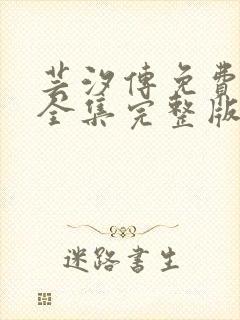 芸汐傳免費
全集完整版
迷路書生